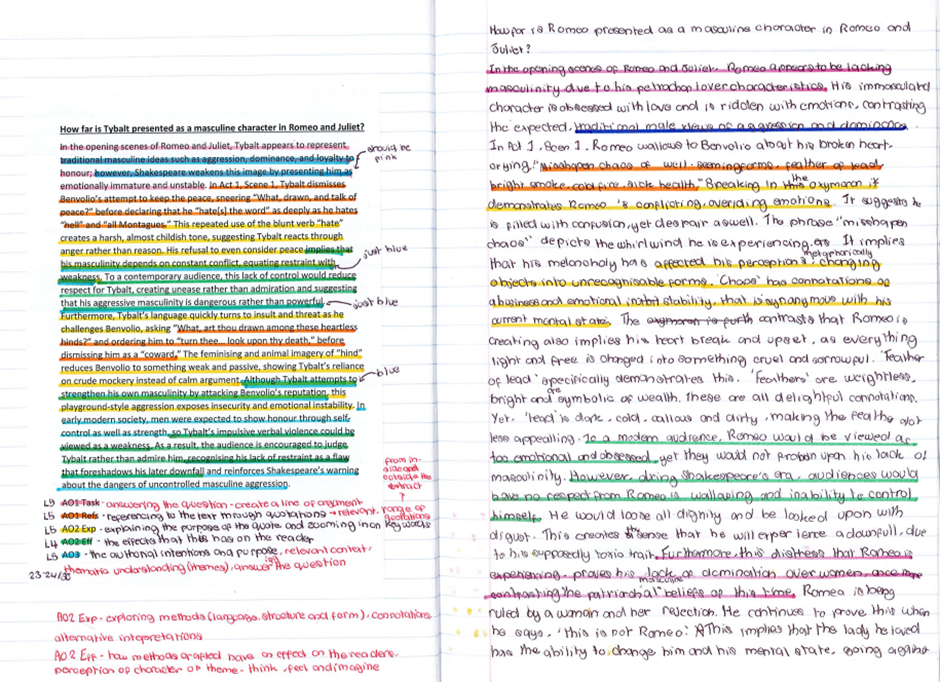 How far is Tybalt presented as a masculine character in Romeo and Juliet?
In the opening scenes of Romeo and Juliet, Tybalt appears to represent
traditional masculine ideas such as aggression, dominance, and loyalty to
honour; however, Shakespeare weakens this image by presenting him as
emotionally immature and unstable. In Act 1, Scene 1, Tybalt dismisses
Benvolio's attempt to keep the peace, sneering "What, drawn, and talk of
peace?" before declaring that he "hate[s] the word" as deeply as he hates
"hell" and "all Montagues." This repeated use of the blunt verb "hate"
creates a harsh, almost childish tone, suggesting Tybalt reacts through
anger rather than reason. His refusal to even consider peace implies that
his masculinity depends on constant conflict, equating restraint with
weakness. To a contemporary audience, this lack of control would reduce
respect for Tybalt, creating unease rather than admiration and suggesting
that his aggressive masculinity is dangerous rather than powerful.
Furthermore, Tybalt's language quickly turns to insult and threat as he
challenges Benvolio, asking "What, art thou drawn among these heartless
hinds?" and ordering him to "turn thee... look upon thy death," before
dismissing him as a "coward." The feminising and animal imagery of "hind"
reduces Benvolio to something weak and passive, showing Tybalt's reliance
on crude mockery instead of calm argument. Although Tybalt attempts to
strengthen his own masculinity by attacking Benvolio's reputation, this
playground-style aggression exposes insecurity and emotional instability. In
early modern society, men were expected to show honour through self-
control as well as strength, so Tybalt's impulsive verbal violence could be
viewed as a weakness. As a result, the audience is encouraged to judge
Tybalt rather than admire him, recognising his lack of restraint as a flaw
that foreshadows his later downfall and reinforces Shakespeare's warning
about the dangers of uncontrolled masculine aggression.
should be
pink
just blue
just blue
blue
from in-
side and
outside the
extract
?
L5 AO1 Task - answering the question - create a line of argument
L5 AO1 Refs - referencing to the text through quotations → relevant, range of quotations
L5 AO2 Exp - explaining the purpose of the quote and zooming in on key words
L4 AO2 Eff - the effects that this has on the reader
L5 AO3 - the authorial intentions and purpose, relevant context,
thematic understanding (themes), answering the question
23-24/30
AO2 Exp - exploring methods (language, structure and form), connotations
alternative interpretations
AO2 Eff - how methods crafted have an effect on the readers
perception of character or theme - think, feel and imagine
How far is Romeo presented as a masculine character in Romeo and
Juliet?
In the opening scenes of Romeo and Juliet, Romeo appears to be lacking
masculinity due to his petrachan lover characteristics. His immasculated
character is obsessed with love and is ridden with emotions, contrasting
the expected, traditional male views of aggression and dominance.
In Act 1, Scen 1, Romeo wallows to Benvolio about his broken heart-
crying, "Misshapen chaos of well-seeming forms, feather of lead,
bright smoke, cold fire, sick health." Speaking in the oxymoron it
demonstrates Romeo's conflicting, overiding emotions. It suggests he
is filled with confusion, yet despair aswell. The phrase "misshapen
chaos" depicts the whirlwind he is experiencing. It implies
that his melancholy has affected his perception, metaphorically changing
objects into unrecognisable forms. 'Chaos' has connotations of
abusiness and emotional instability, that is synonymous with his
current mental state. The oxymoron is furth contrasts that Romeo is
creating also implies his heart break and upset, as everything
light and free is changed into something cruel and sorrowful. 'Feather
of lead' specifically demonstrates this. 'Feathers' are weightless,
bright and are symbolic of wealth. These are all delightful connotations.
Yet, 'lead' is dark, cold, callous and dirty, making the feather
less appealling. To a modern audience, Romeo would be viewed as
too emotional and obsessed, yet they would not frown upon his lack of
masculinity. However, during Shakespeare's era, audiences would
have no respect from Romeo is wallowing and inability to control
himself. He would loose all dignity and be looked upon with
disgust. This creates the sense that he will experience a downfall, due
to his supposedly toxic trait. Furthermore, this distress that Romeo is
experiencing, proves his lack of domination over women, once more
contrasting the patriarchal masculine beliefs of this time. Romeo is being
ruled by a woman and her rejection. He continues to prove this when
he says, 'this is not Romeo.' This implies that the lady he loved
has the ability to change him and his mental state. Going against